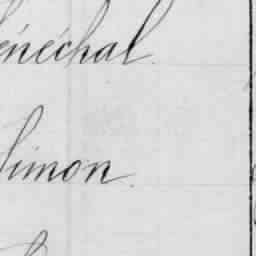 énéchal
Simon.